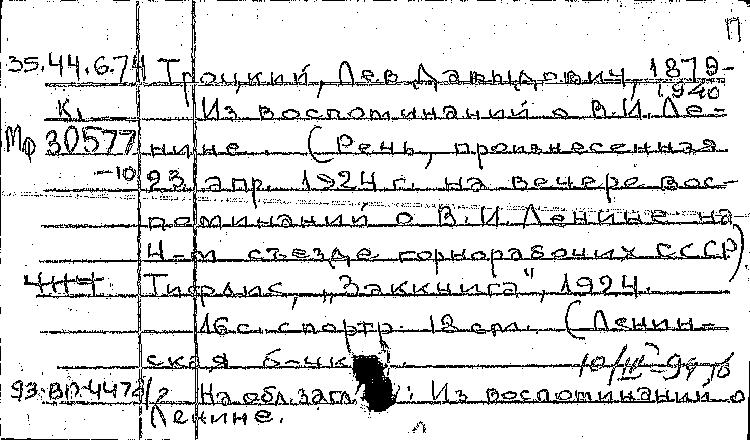 П
35.44.6.74 Троцкий, Лев Давыдович, 1879-
1940
К1 Из воспоминаний о В.И. Ле-
Мф 30577 нине. (Речь, произнесенная
-10 23 апр. 1924 г. на вечере вос-
поминаний о В.И. Ленине на
4-м съезде горнорабочих СССР)
Тифлис, „Заккнига", 1924.
16 с. с портр. 18 см. (Ленин-
ская б-чка).
93-ВП-4478/2 На обл. загл.: Из воспоминаний о
Ленине.